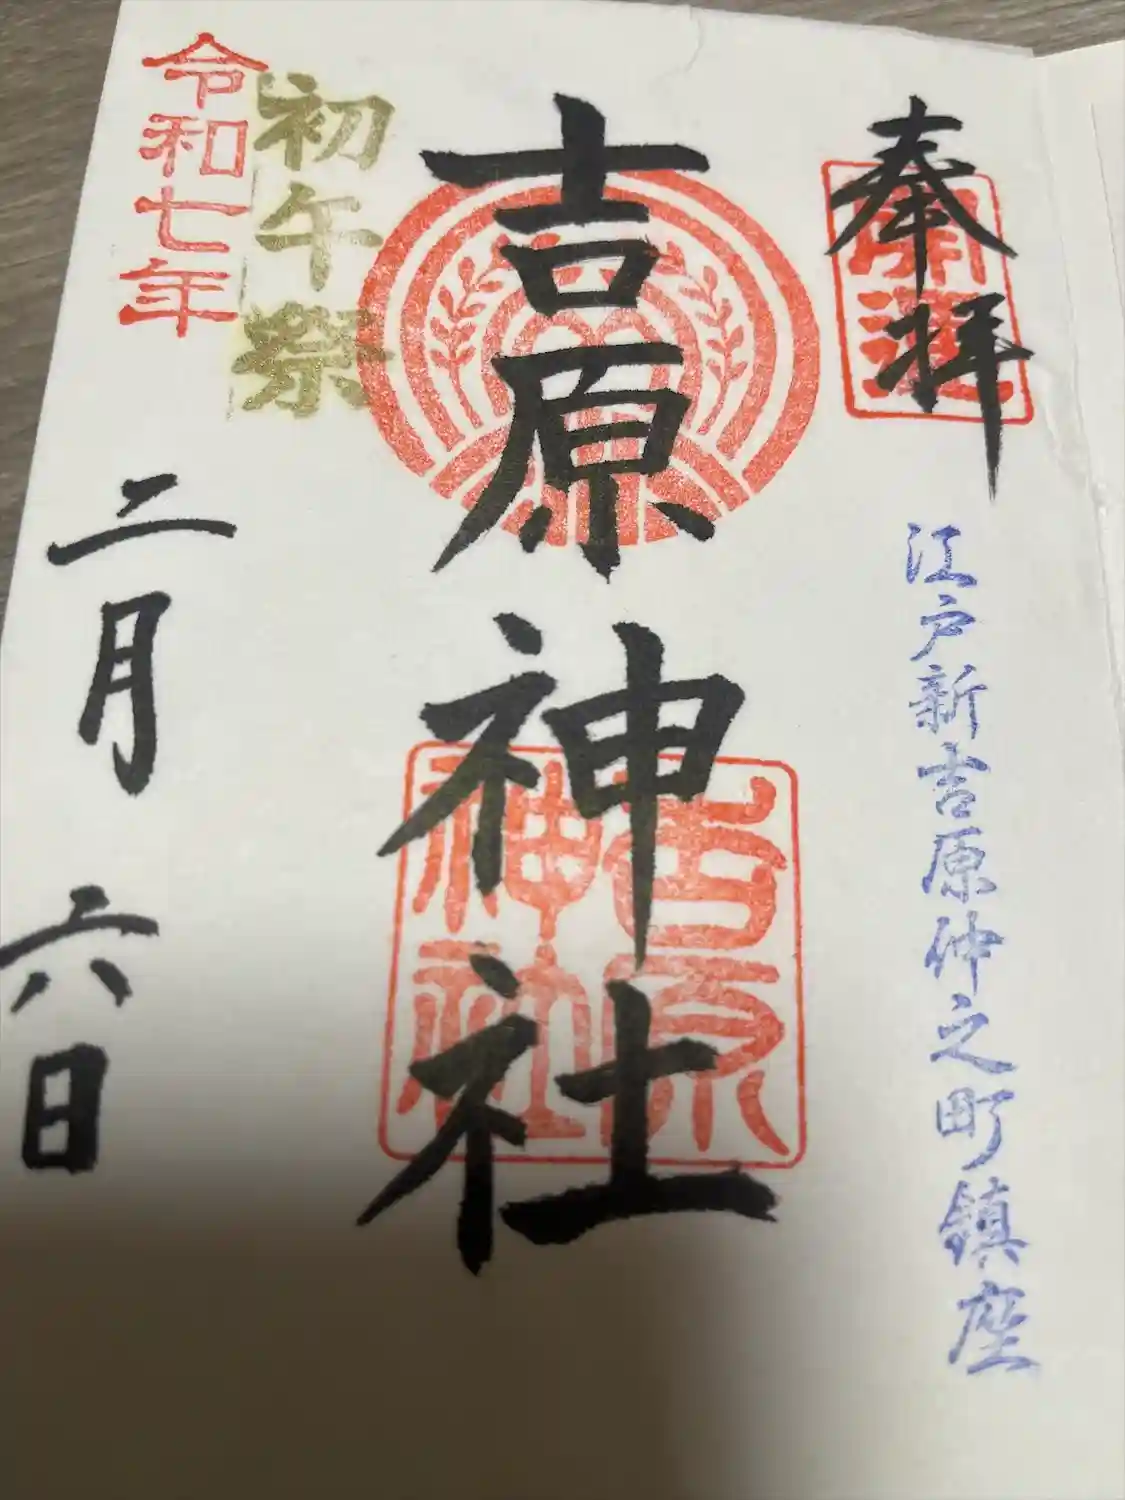 奉拝
開運
江戸新吉原仲之町鎮座
吉原神社
吉原
神社
初午祭
令和七年
二月六日